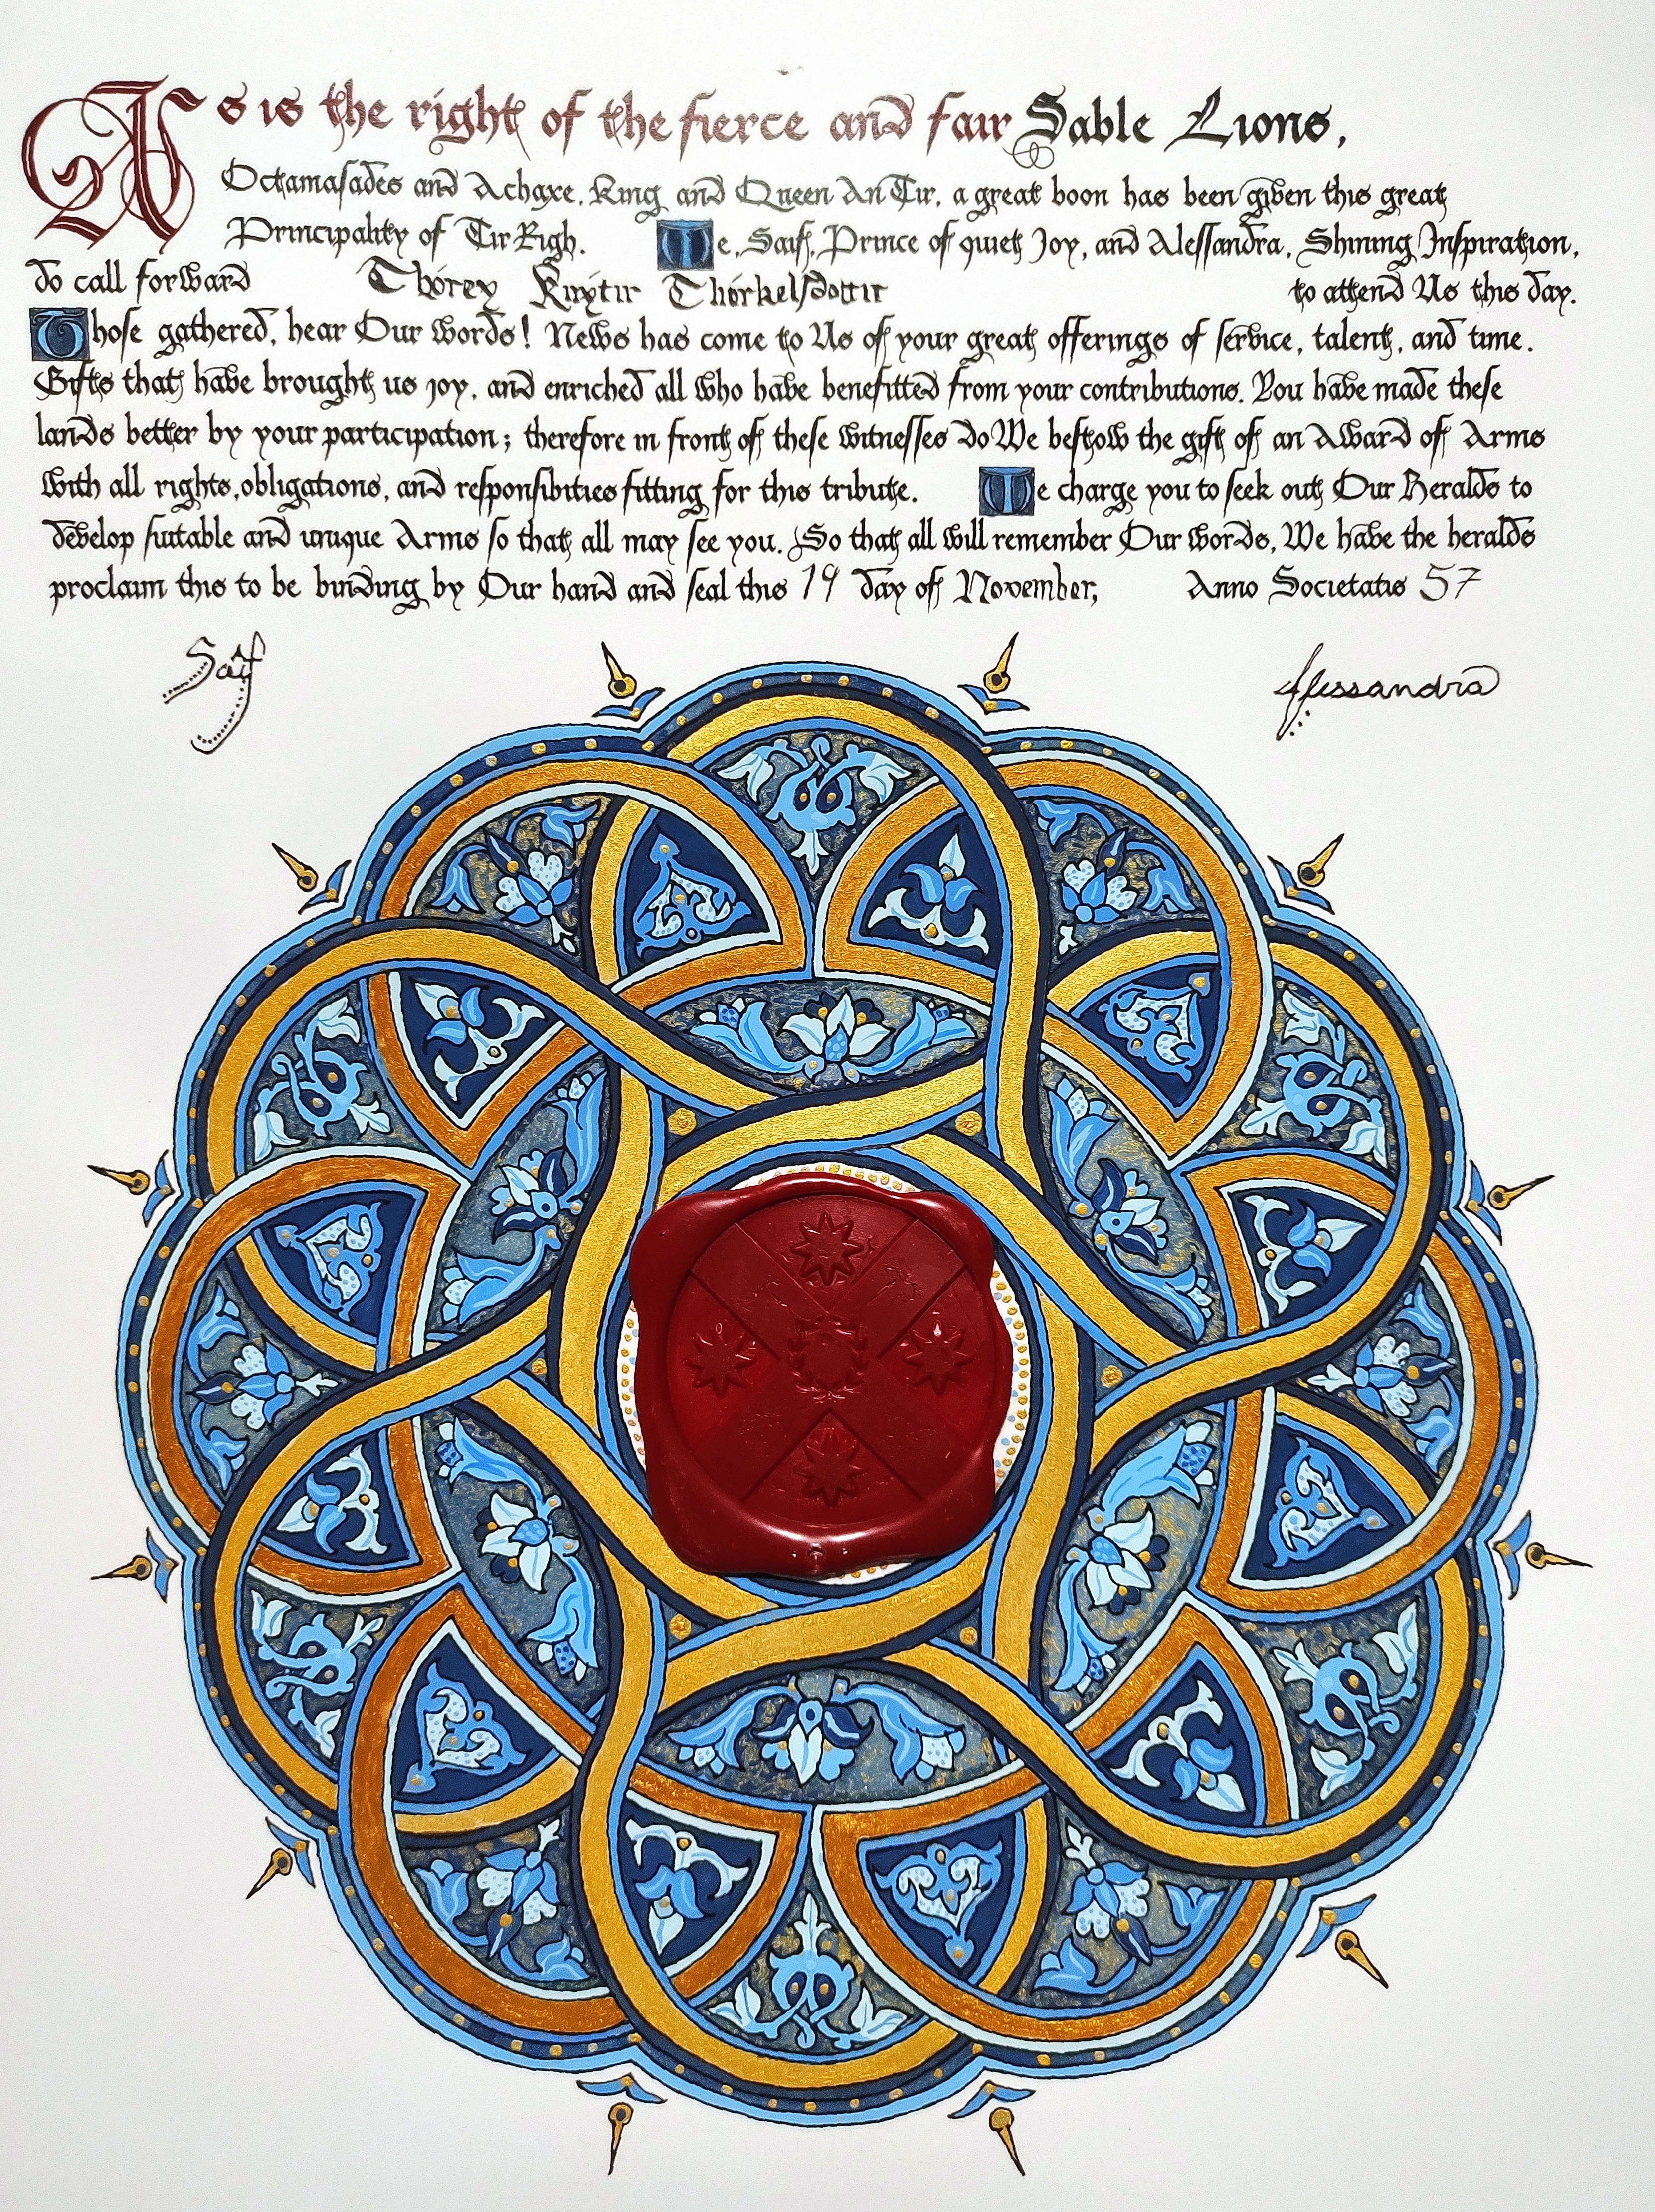 As is the right of the fierce and fair Sable Lions,
Octamasades and Achaxe, King and Queen An Tir, a great boon has been given this great
Principality of Tir Righ. We, Saif, Prince of quiet Joy, and Alessandra, Shining Inspiration,
do call forward Thórey Knýtir Thórkelsdóttir to attend Us this day.
Those gathered, hear Our words! News has come to Us of your great offerings of service, talent, and time.
Gifts that have brought us joy, and enriched all who have benefitted from your contributions. You have made these
lands better by your participation; therefore in front of these witnesses do We bestow the gift of an Award of Arms
with all rights, obligations, and responsibities fitting for this tribute. We charge you to seek out Our Heralds to
develop suitable and unique Arms so that all may see you. So that all will remember Our words, We have the heralds
proclaim this to be binding by Our hand and seal this 19 day of November, Anno Societatis 57
Saif Alessandra